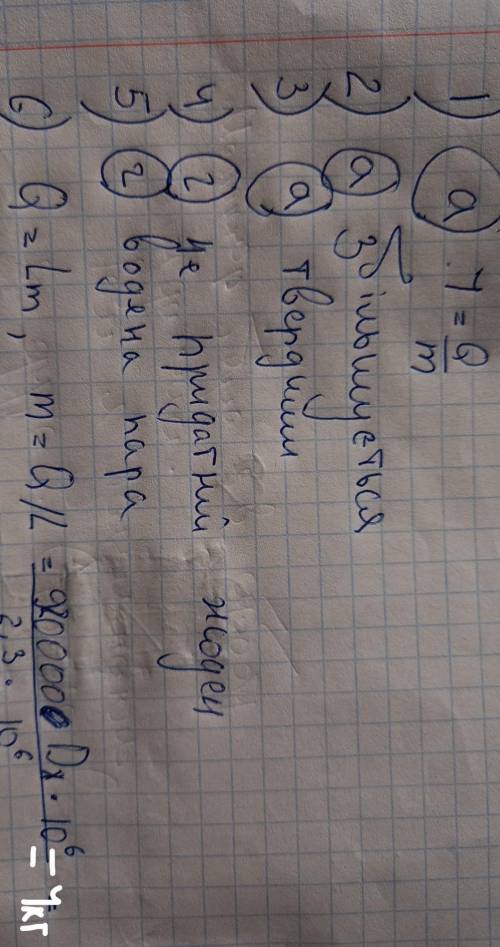 1) а .7 = Q/m
2) а Збільшується
3) а твердим
4) г не придатний жоден
5) г водяна пара
6) Q = Lm, m = Q/L = 9200000 Дж · 10⁶ / 2,3 · 10⁶ = 4кг